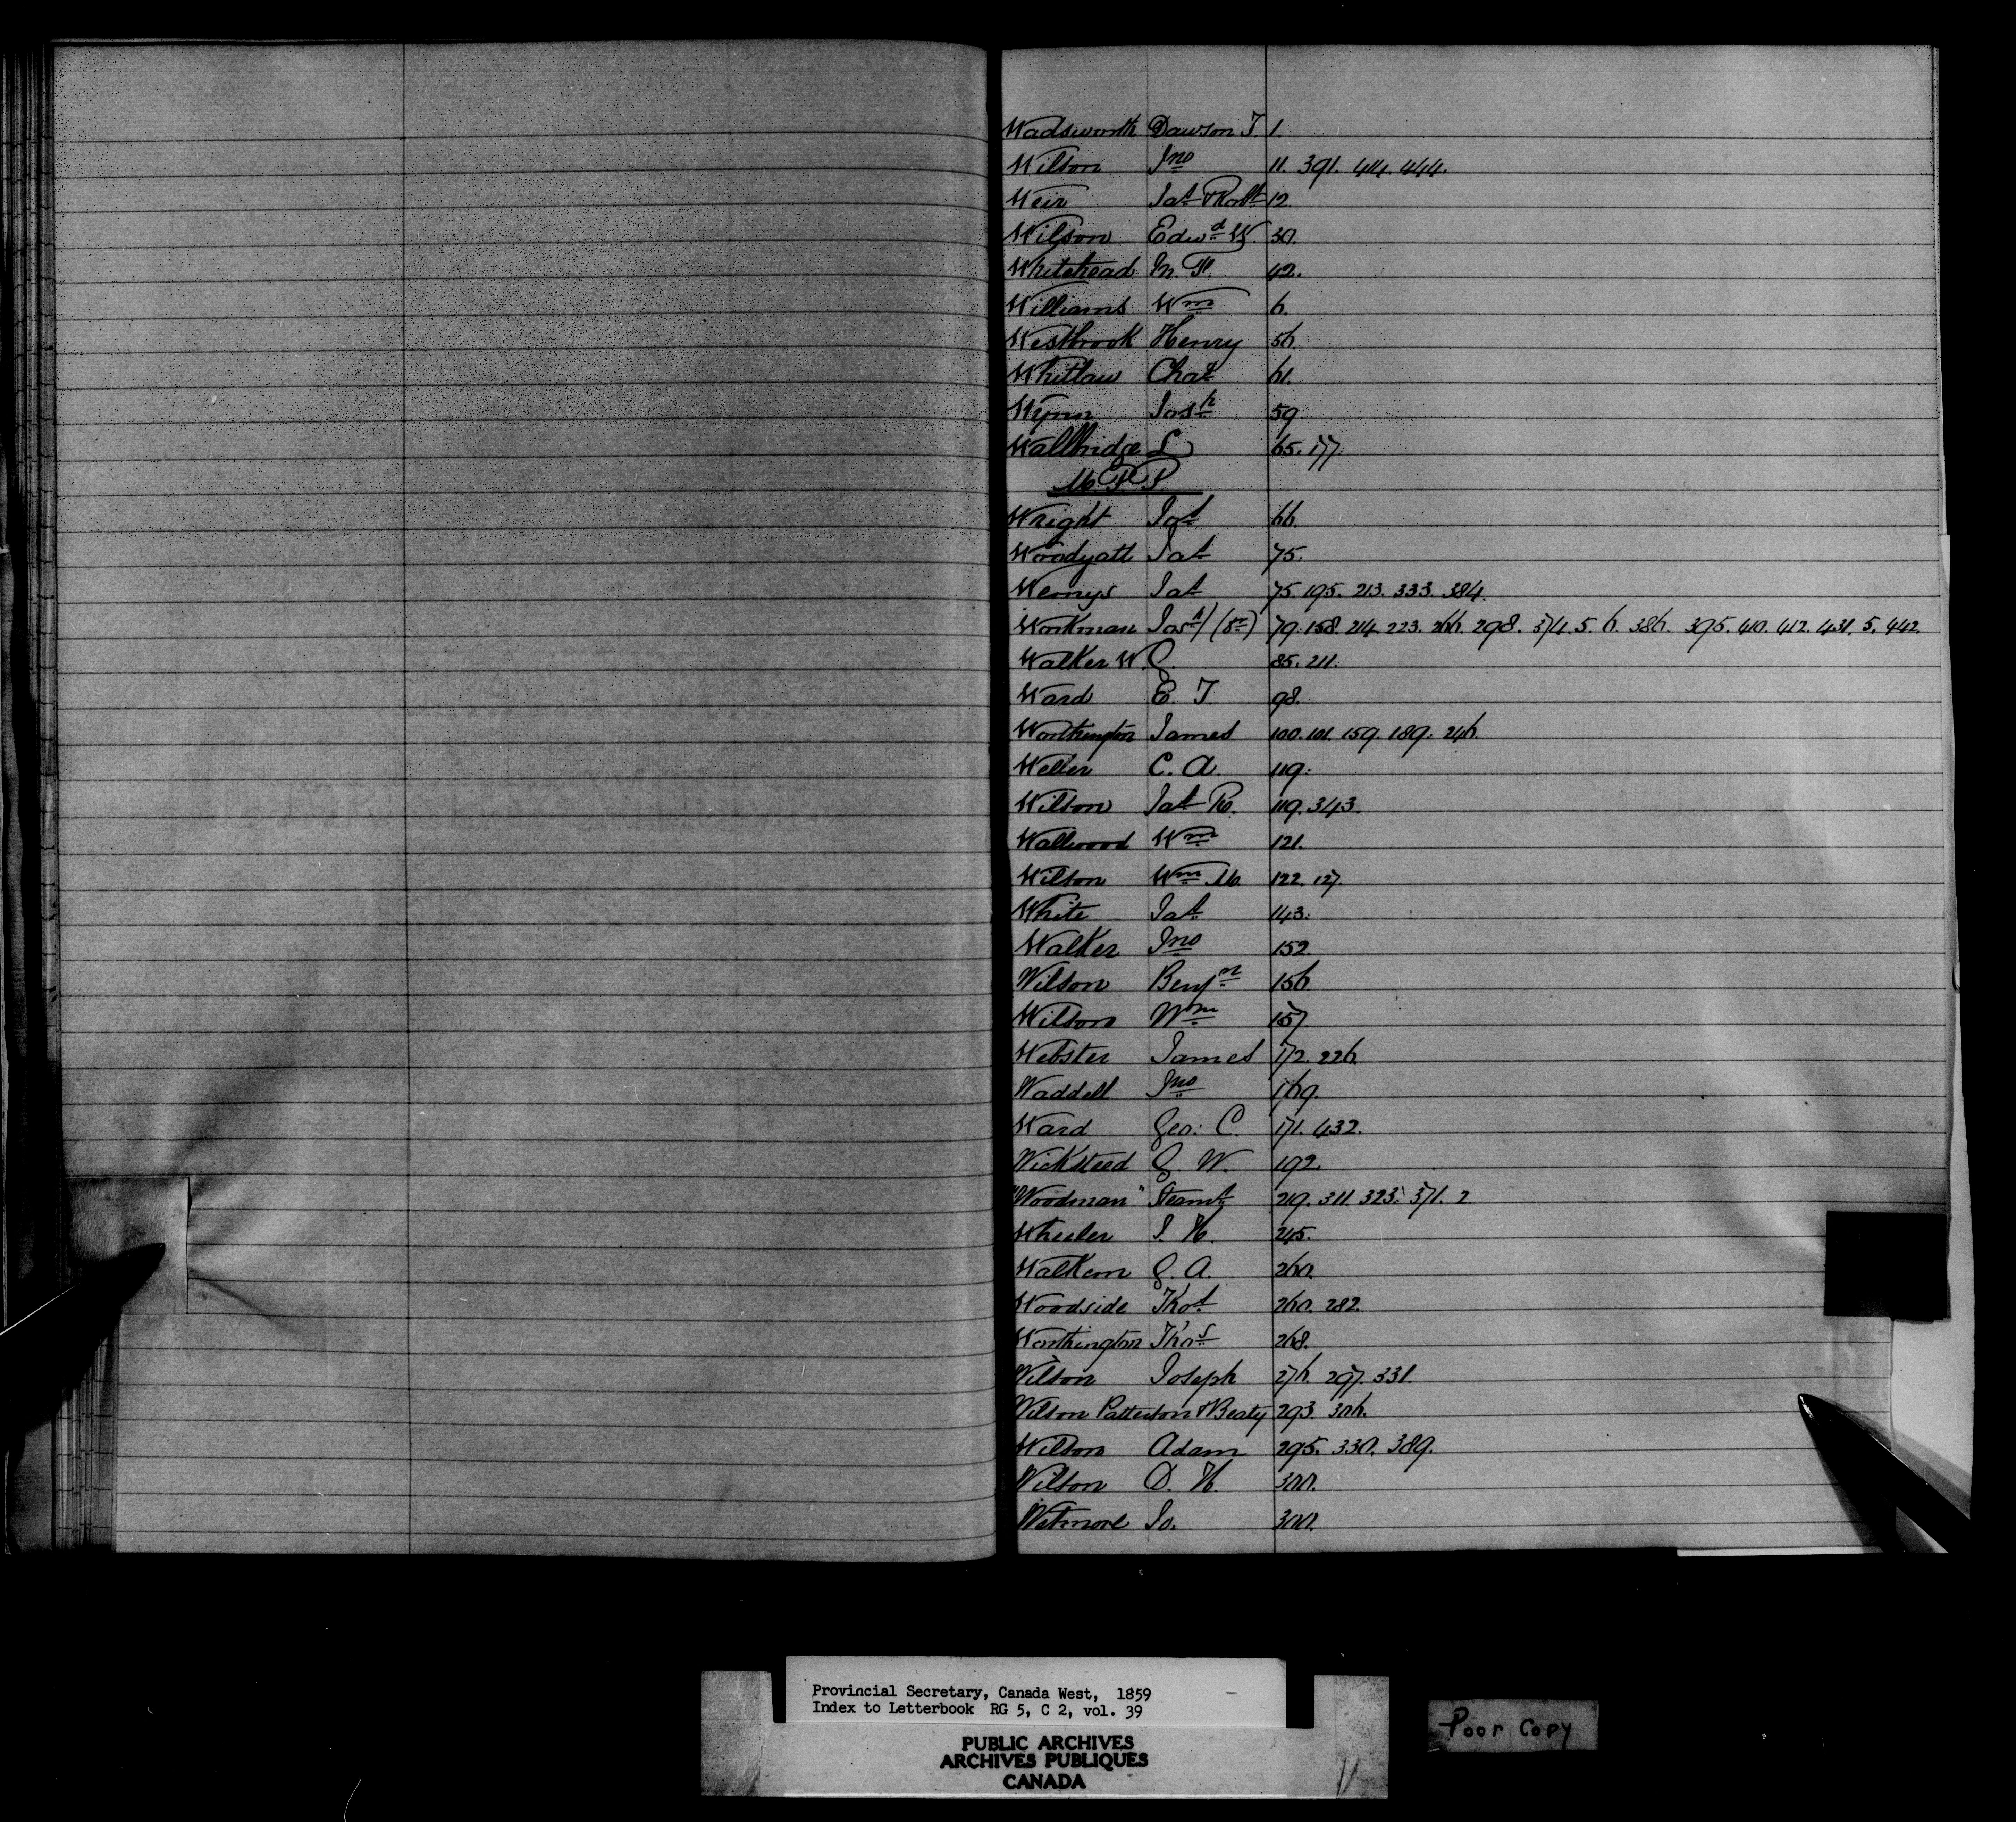 Wadsworth Dawson T. 1.
Wilson Jno 11. 391. 414. 444.
Weir Jas & Robt 12.
Wilson Edwd W. 30.
Whitehead M. F. 42.
Williams Wm 6.
Westbrook Henry 56.
Whitlaw Chas 61.
Wynn Josh 59.
Wallbridge L 65. 177.
M.P.P.
Wright Jos 66.
Woodyatt Jas 75.
Wemys Jas 75. 195. 213. 333. 384.
Workman Josh (Dr) 79. 158. 214. 223. 266. 298. 374. 5. 6. 386. 395. 410. 412. 431. 5. 442.
Walker W. G. 85. 211.
Ward E. T. 98.
Worthington James 100. 101. 159. 189. 246.
Weller C. A. 119.
Wilson Jas R. 119. 343.
Wallwood Wm 121.
Wilson Wm M. 122. 127.
White Jas. 143.
Walker Jno 152
Wilson Benjn 156
Wilson Wm 157
Webster James 172. 226.
Waddell Jno 169.
Ward Geo: C. 171. 432.
Wicksteed G. W. 192.
"Woodman" Steamr 219. 311. 323. 371. 2
Wheeler J. H. 245.
Walkem G. A. 260.
Woodside Thos. 260. 282.
Worthington Thos 268.
Wilson Joseph 276. 297. 331.
Wilson Patterson & Beaty 293. 306.
Wilson Adam 295. 330. 389.
Wilson D. H. 300.
Wetmore Jo. 300.
Provincial Secretary, Canada West, 1859
Index to Letterbook RG 5, C 2, vol. 39
PUBLIC ARCHIVES
ARCHIVES PUBLIQUES
CANADA
Poor Copy